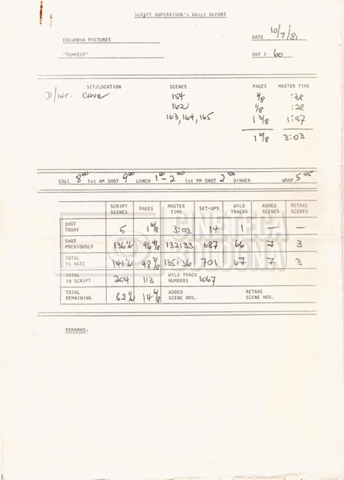 SCRIPT SUPERVISOR'S DAILY REPORT
COLUMBIA PICTURES DATE 10/7/81
"TEMPEST" DAY: 60
SET/LOCATION SCENES PAGES MASTER TIME
D/Int. Cave 154 4/8 :38
162 4/8 :28
163, 164, 165 1:57
3:03
CALL 8 00 1st AM SHOT 9 00 LUNCH 1 00 - 2 00 1st PM SHOT 2 50 DINNER WRAP 5 05
SCRIPT SCENES PAGES MASTER TIME SET-UPS WILD TRACKS ADDED SCENES RETAKE SCENES
SHOT TODAY 5 3:03 14 1 — —
SHOT PREVIOUSLY 132:33 687 66 7 3
TOTAL TO DATE 135:36 701 67 7 3
TOTAL IN SCRIPT 204 113 WILD TRACK NUMBERS 1067
TOTAL REMAINING ADDED SCENE NOS. RETAKE SCENE NOS.
REMARKS:
CINETECA
BOLOGNA